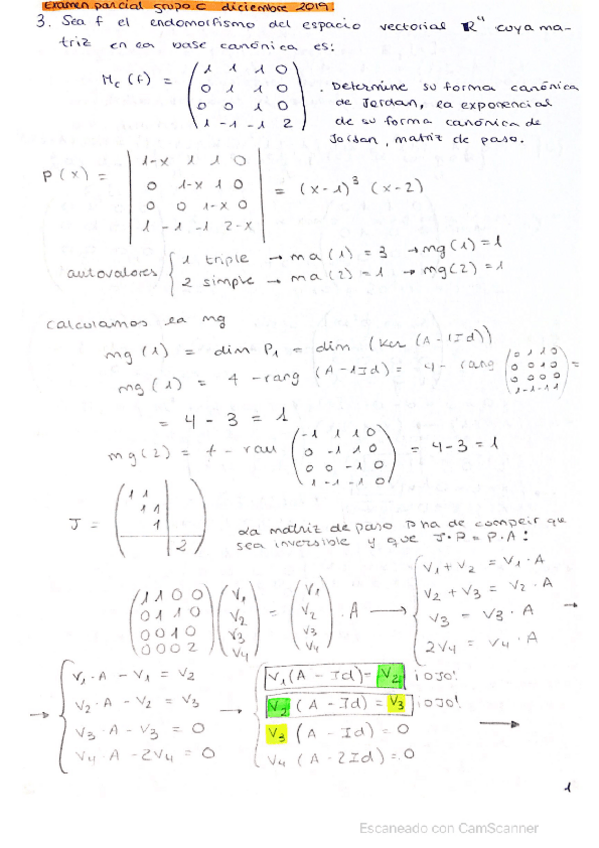 Examen parcial grupo C diciembre 2019.
3. Sea f el endomorfismo del espacio vectorial R⁴ cuya ma-
triz en la base canónica es:
M_C (f) = ( 1 1 1 0 / 0 1 1 0 / 0 0 1 0 / 1 -1 -1 2 ) . Determine su forma canónica
de Jordan, la exponencial
de su forma canónica de
Jordan, matriz de paso.
P(x) = | 1-x 1 1 0 / 0 1-x 1 0 / 0 0 1-x 0 / 1 -1 -1 2-x | = (x-1)³ (x-2)
autovalores { 1 triple → ma(1) = 3 → mg(1) = 1
2 simple → ma(2) = 1 → mg(2) = 1
calculamos la mg
mg(1) = dim P₁ = dim (Ker (A - 1Id))
mg(1) = 4 - rang (A - 1Id) = 4 - rang ( 0 1 1 0 / 0 0 1 0 / 0 0 0 0 / 1 -1 -1 1 ) =
= 4 - 3 = 1
mg(2) = 4 - ran ( -1 1 1 0 / 0 -1 1 0 / 0 0 -1 0 / 1 -1 -1 0 ) = 4-3 = 1
J = ( 1 1 / 1 1 / 1 / 2 )
La matriz de paso P ha de cumplir que
sea inversible y que J·P = P·A!
( 1 1 0 0 / 0 1 1 0 / 0 0 1 0 / 0 0 0 2 ) ( V₁ / V₂ / V₃ / V₄ ) = ( V₁ / V₂ / V₃ / V₄ ) · A → { V₁ + V₂ = V₁ · A
V₂ + V₃ = V₂ · A
V₃ = V₃ · A
2V₄ = V₄ · A →
→ { V₁ · A - V₁ = V₂
V₂ · A - V₂ = V₃
V₃ · A - V₃ = 0
V₄ · A - 2V₄ = 0
→ { V₁ (A - Id) = V₂ ¡OJO!
V₂ (A - Id) = V₃ ¡OJO!
V₃ (A - Id) = 0 →
V₄ (A - 2Id) = 0
1
Escaneado con CamScanner